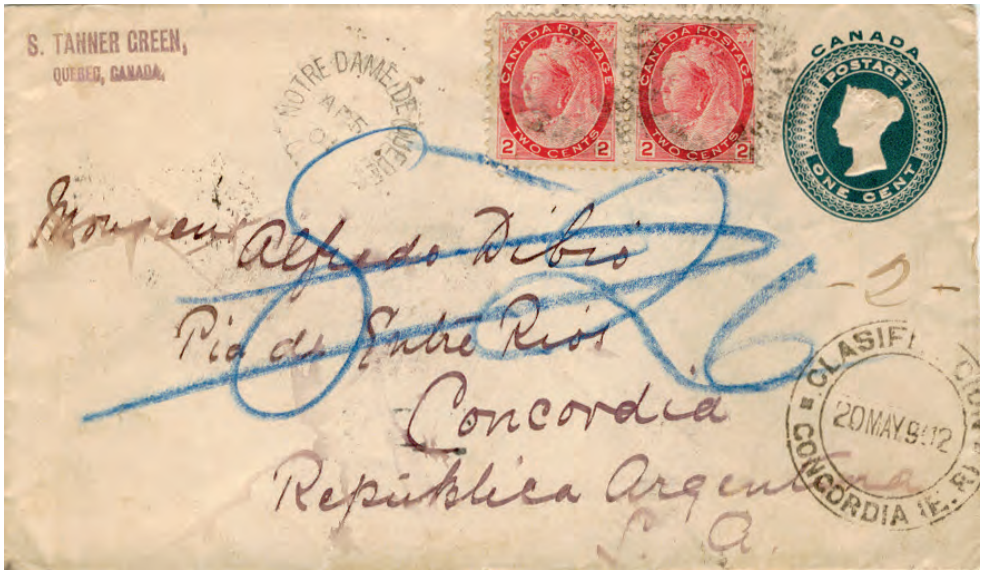 S. TANNER GREEN,
QUEBEC, CANADA,
NOTRE DAME DE
CANADA POSTAGE
TWO CENTS
2 2
CANADA POSTAGE
TWO CENTS
2 2
CANADA
POSTAGE
ONE CENT
Monsieur
Alfredo Dibio
Pia de Entre Rios
Concordia
República Argentina
S. A.
26
- 2 -
CLASIFI
20 MAY 902
CONCORDIA (E. R